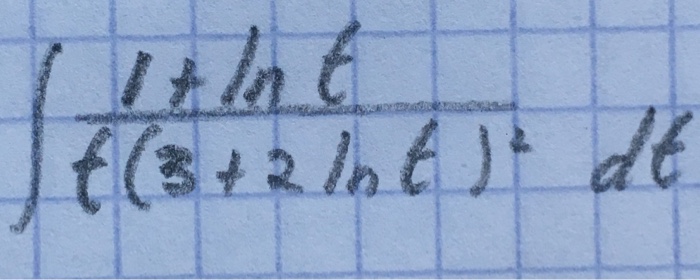 ∫ (1 + ln t) / (t(3 + 2 ln t)²) dt